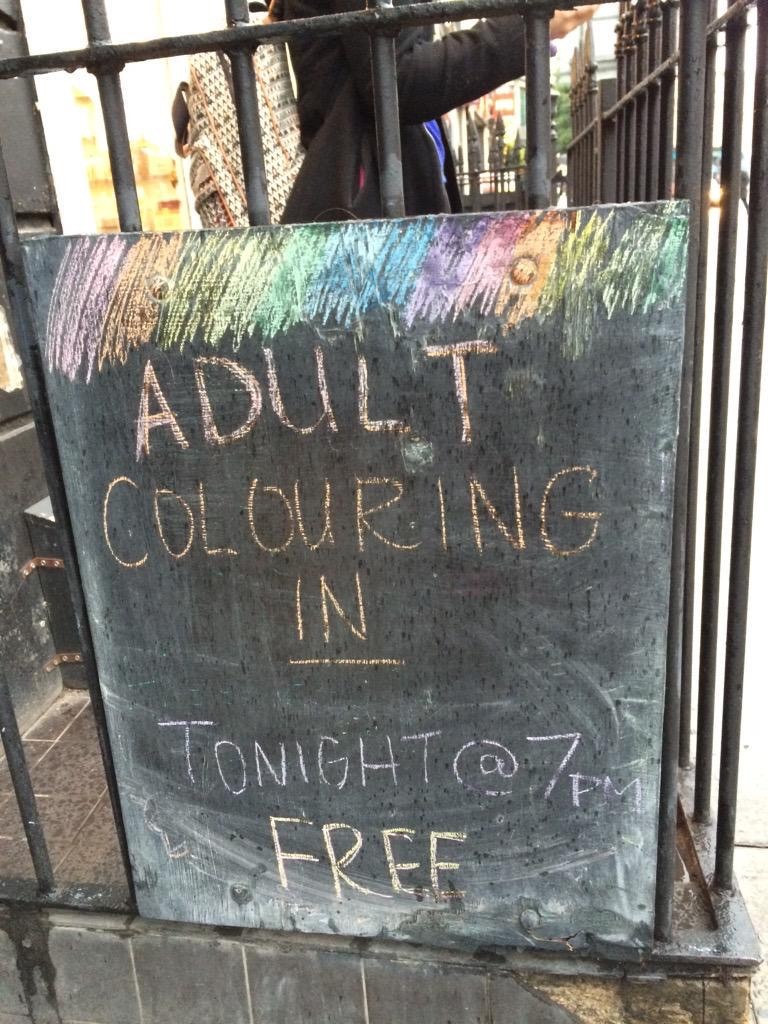 ADULT
COLOURING
IN
TONIGHT @ 7PM
FREE